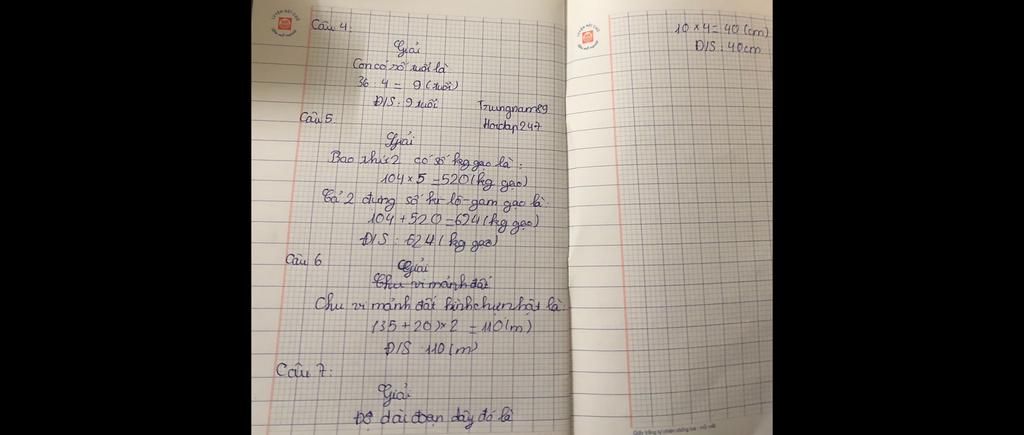 Câu 4:
Giải
Con có số tuổi là
36 : 4 = 9 (tuổi)
Đ/S: 9 tuổi
Trungnam89
Hoidap247
Câu 5.
Giải
Bao thứ 2 có số kg gạo là:
104 × 5 = 520 (kg gạo)
Cả 2 đựng số ki-lô-gam gạo là:
104 + 520 = 624 (kg gạo)
Đ/S: 624 (kg gạo)
Câu 6
Giải
Chu vi mảnh đất
Chu vi mảnh đất hình chữ nhật là:
(35 + 20) × 2 = 110 (m)
Đ/S 110 (m)
Câu 7:
Giải
Độ dài đoạn dây đó là
10 × 4 = 40 (cm)
Đ/S: 40cm